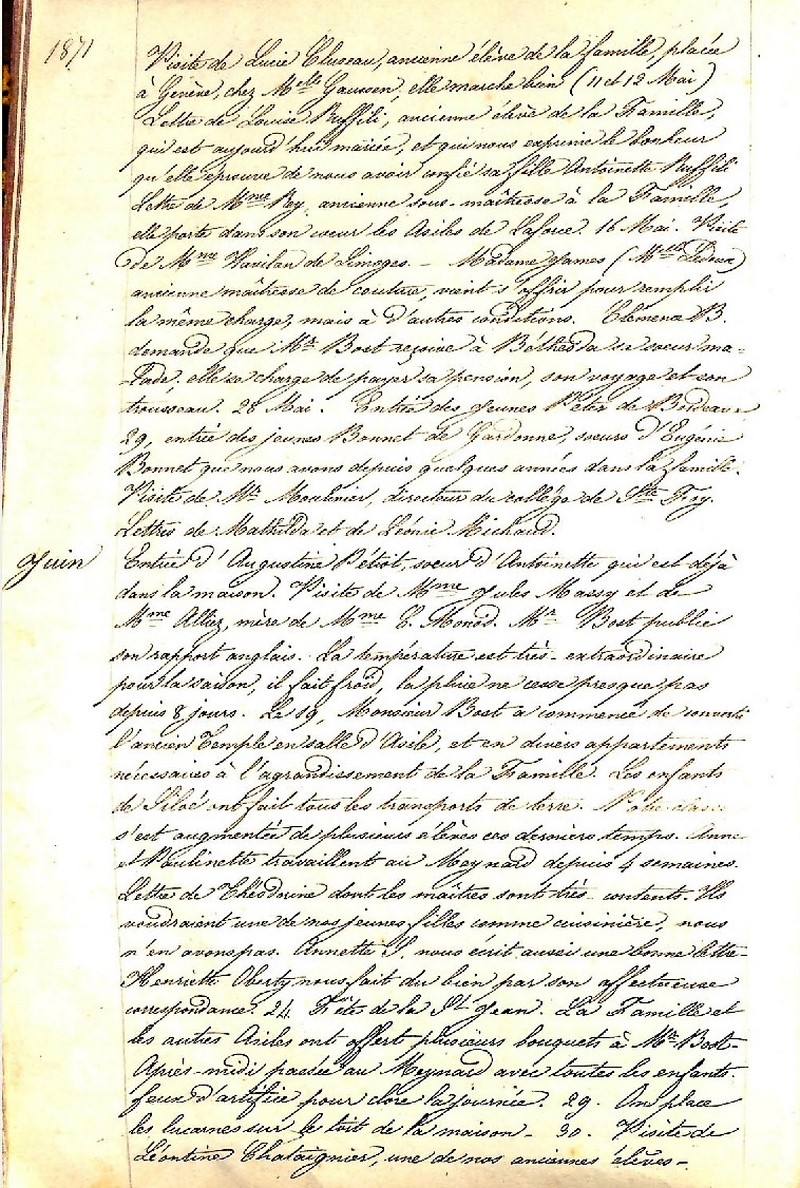 1871
Visite de Lucie Cluseau, ancienne élève de la famille, placée
à Genève, chez Melle Gaussen, elle marche bien (11 et 12 Mai)
Lettre de Louise Ruffili, ancienne élève de la Famille,
qui est aujourd'hui mariée, et qui nous exprime le bonheur
qu'elle éprouve de nous avoir confié sa fille Antoinette Ruffili
Lettre de Mme Rey, ancienne sous-maîtresse à la Famille,
elle porte dans son cœur les Asiles de Laforce. 16 Mai. Visite
de Mme Havilan de Limoges. – Madame James (Melle Ledoux)
ancienne maîtresse de couture, vient s'offrir pour remplir
la même charge, mais à d'autres conditions. Clémence B.
demande que Mr Bost reçoive à Béthesda sa sœur ma-
-lade. elle se charge de payer sa pension, son voyage et son
trousseau. 28 Mai. Entrée des jeunes Péter de Bordeaux
29, entrée des jeunes Bonnet de Gardonne, sœurs d'Eugénie
Bonnet que nous avons depuis quelques années dans la famille.
Visite de Mr Moulinier, directeur du collège de Ste Foy.
Lettres de Mathilda et de Léonie Michaud.
Juin
Entrée d'Augustine Pétiot, sœur d'Antoinette qui est déjà
dans la maison. Visite de Mme Jules Massy et de
Mme Alliez, mère de Mme E. Monod. Mr Bost publie
son rapport anglais. La température est très-extraordinaire
pour la saison, il fait froid, la pluie ne cesse presque pas
depuis 8 jours. Le 19, Monsieur Bost a commencé de convertir
l'ancien Temple en salle d'Asile, et en divers appartements
nécessaires à l'agrandissement de la Famille. Les enfants
de Siloé ont fait tous les transports de terre. Notre classe
s'est augmentée de plusieurs élèves ces derniers temps. Anne
et Paulinette travaillent au Meynard depuis 4 semaines.
Lettre de Théodorine dont les maîtres sont très-contents. Ils
voudraient une de nos jeunes filles comme cuisinière, nous
n'en avons pas. Annette S. nous écrit aussi une bonne lettre–
Henriette Oberty nous fait du bien par son affectueuse
correspondance. 24. Fête de la St Jean. La Famille et
les autres Asiles ont offert plusieurs bouquets à Mr Bost–
Après-midi passée au Meynard avec toutes les enfants.
feux d'artifice pour clore la journée. 29. On place
les lucarnes sur le toit de la maison – 30. Visite de
Léontine Chataignier, une de nos anciennes élèves –